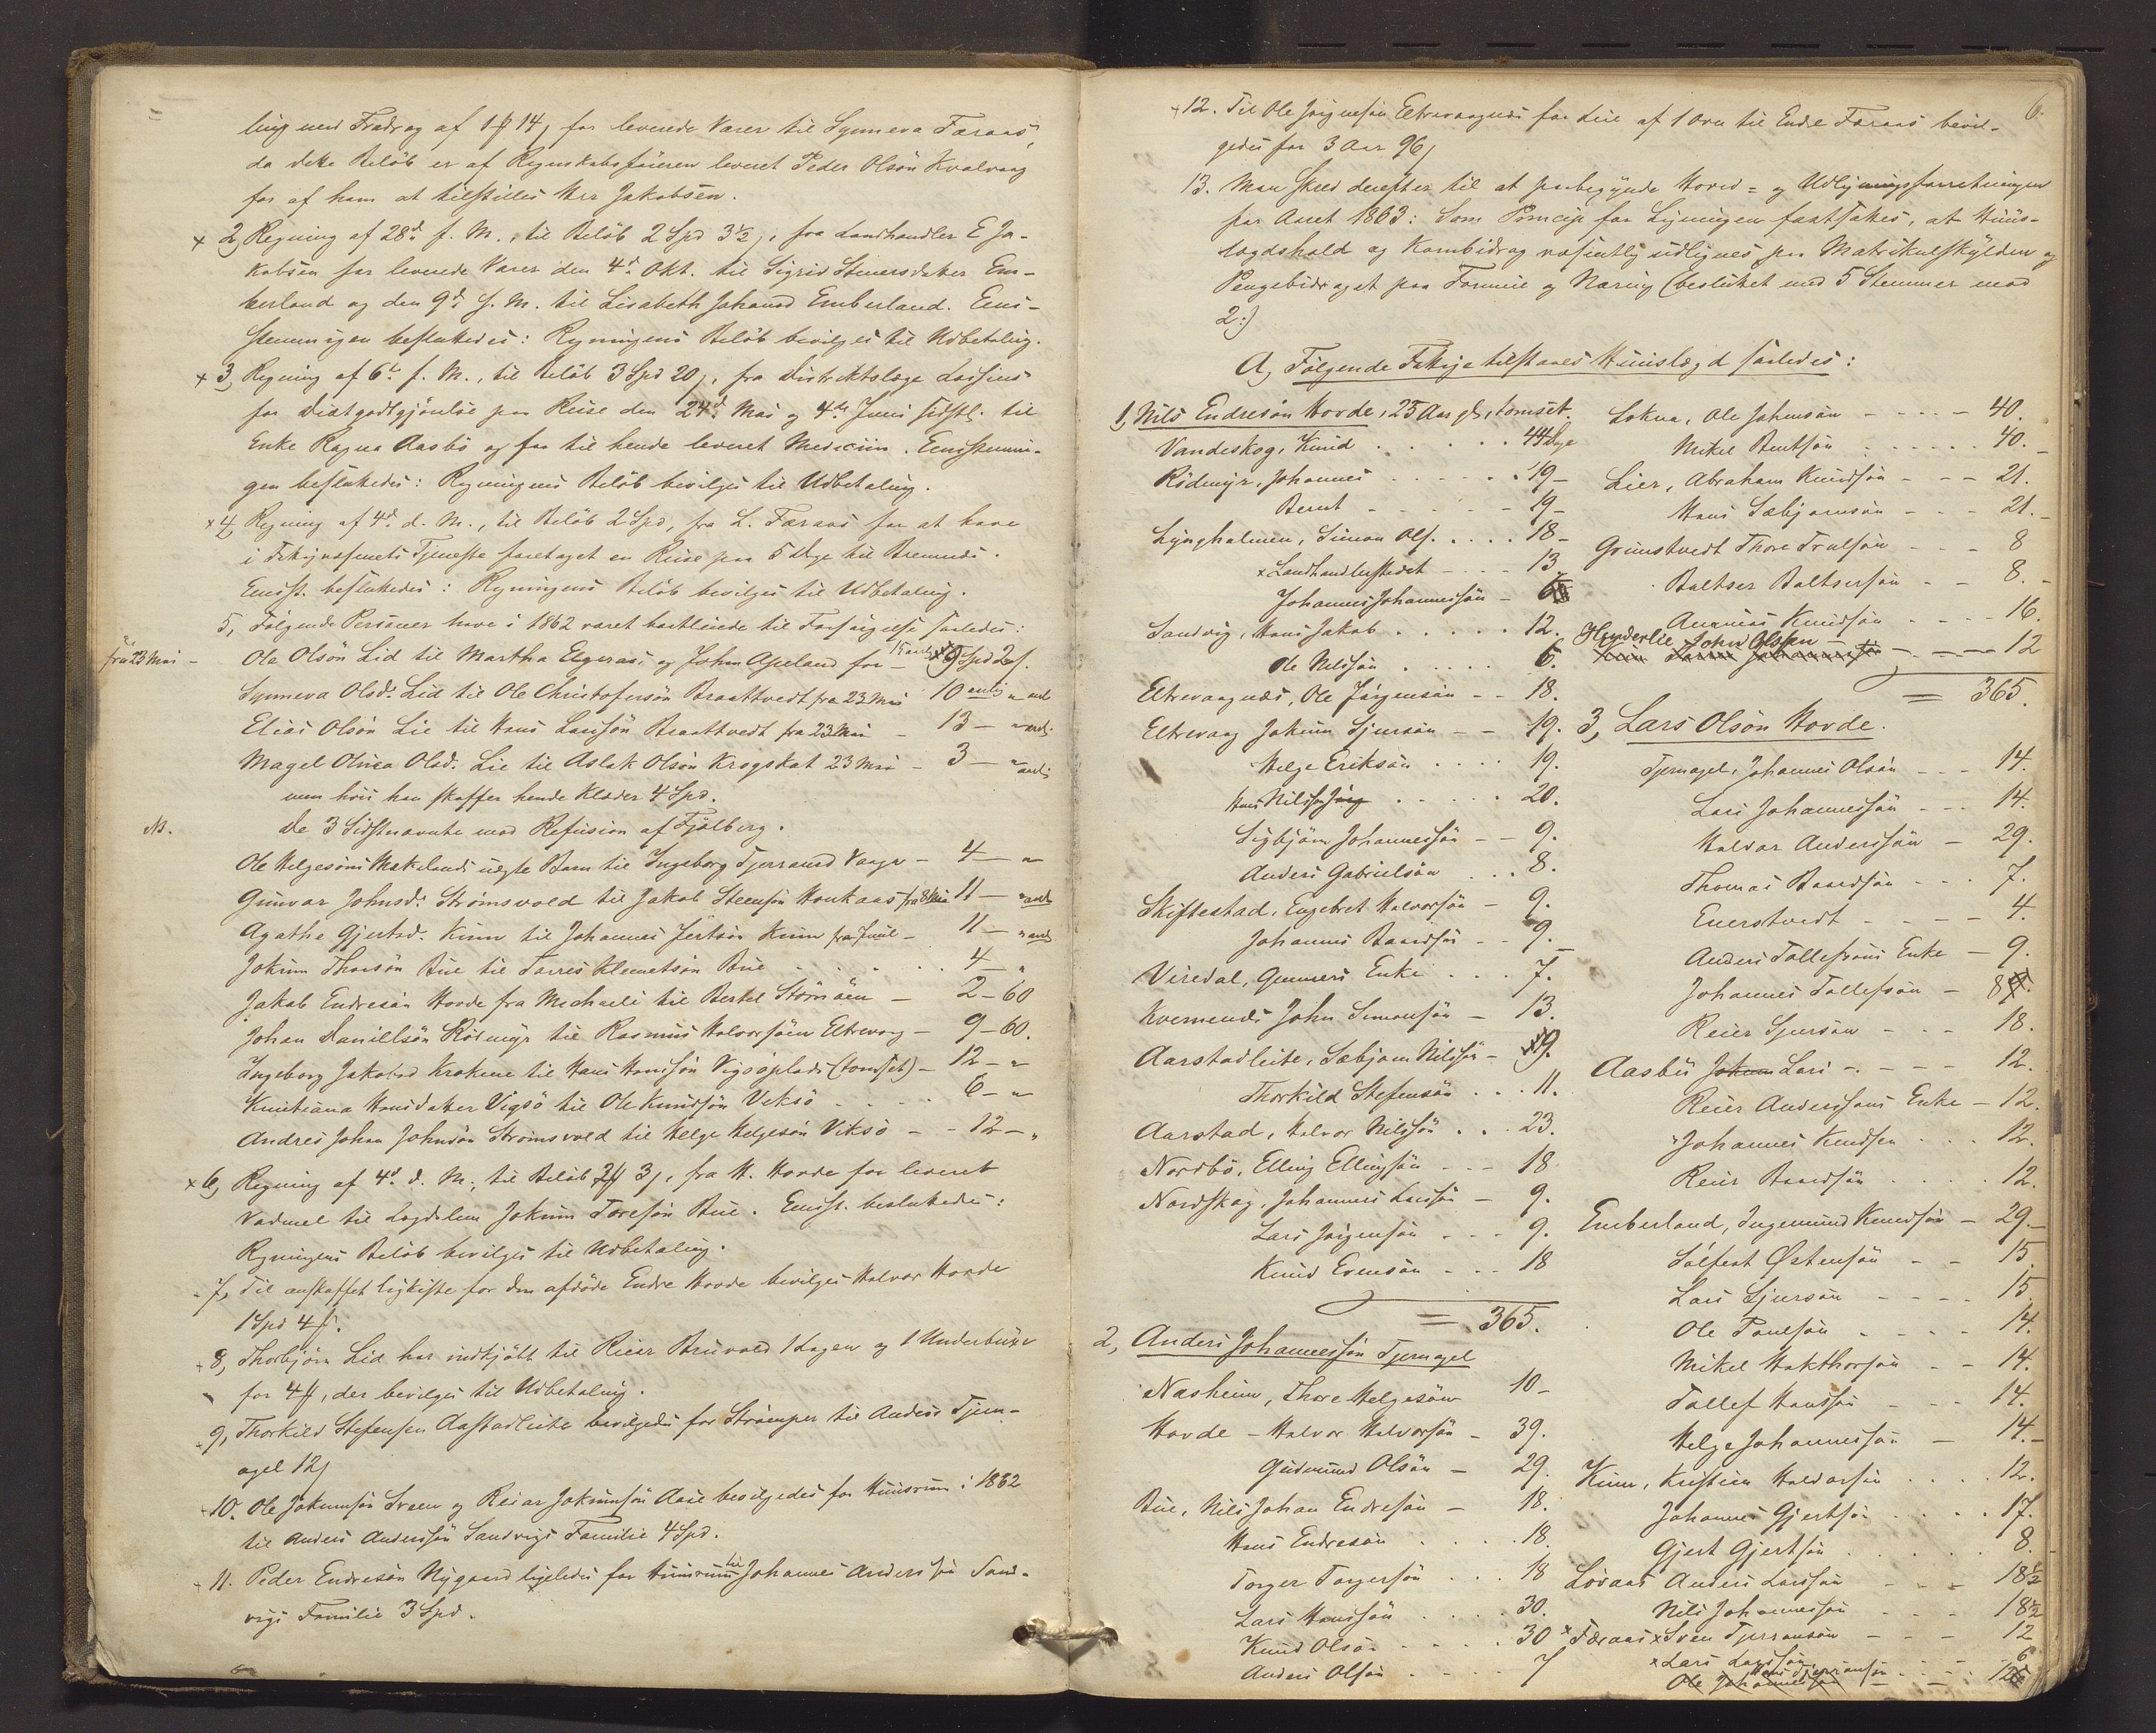 ling med Fradrag af 1 ƒ 14, for leverede Varer til Synneva Færaas,
da dette Beløb er af Regnskabsføreren leveret Peder Olsøn Kvalvaag
for af ham at tilstilles Hr Jakobsen.
x 2, Regning af 28d. f. M., til Beløb 2 Spd 3½, fra Landhandler E Ja-
kobsen for leverede Varer den 4d. Okt. til Sigrid Steuersdatter Em-
berland og den 9d. f. M. til Lisabeth Johansd Emberland. Een-
stemmigen besluttedes: Regningens Beløb bevilges til Udbetaling.
x 3, Regning af 6t. f. M., til Beløb 3 Spd 20, fra Distriktslæge
for Diætgodtgjørelse paa Reise den 24d. Mai og 4de Juni sidstl. til
Enke Ragna Aasbø og for til hende leveret Medeciin. Eenstemmi-
gen besluttedes: Regningens Beløb bevilges til Udbetaling.
x 4, Regning af 4d. d. M., til Beløb 2 Spd, fra L. Færaas for at have
i Fattigvæsenets Tjeneste foretaget en Reise paa 5 Dge til Bremnes.
Eenst. besluttedes: Regningens Beløb bevilges til Udbetaling.
5, Følgende Personer have i 1862 været bortleiede til Forsørgelse saaledes:
fra 23 Mai - Ole Olsøn Lid til Martha Elgeraas og John Apeland for - 9 Spd 2
Synneva Olsd. Lid til Ole Christofersøn Braattvedt fra 23 Mai 10 aarlig
Elias Olsøn Lie til Hans Larsøn Braattvedt fra 23 Mai - 13 -
Magel Olivia Olsd. Lie til Aslak Olsøn Krogskat 23 Mai - 3 -
men hvis han skaffer hende Klæder 4 Spd.
N. De 3 Sidstnævnte mod Refusion af Fjælberg.
Ole Helgesøns Mækelands uægte Barn til Ingeborg Tjerransd Vaage - 4 - "
Gunvar Johnsd. Strømsvold til Jakob Steensøn Haukaas fra 8 Mai 11 -
Agathe Gjertsd. Kinn til Johannes Jertsøn Kinn fra Juul - 11 -
Jokum Thorsøn Bue til Torres Klemetsøn Bue . . . 4 - "
Jakob Endresøn Hovde fra Michaeli til Bertel Strømøen - 2 - 60
Johan Daniellsøn Rødmyr til Rasmus Halvorsøn Eltrevaag - 9 - 60.
Ingeborg Jakobsd Krakene til Hans Hansøn Vigsøplads (tomset) - 12 - "
Kristiana Hansdatter Vigsø til Ole Knudsøn Veksø . . . 6 - "
Andres Johan Johnsøn Strømsvold til Helge Helgesøn Viksø - - 12 - "
x 6, Regning af 4d. d. M., til Beløb 3, fra H. Hovde for leveret
Vadmel til Lægdslem Jokum Toresøn Bue. Eenst. besluttedes:
Regningens Beløb bevilges til Udbetaling.
7, Til anskaffet Ligkiste for den afdøde Endre Hovde bevilges Halvor Hovde
1 Spd 4 ƒ.
8, Thorbjørn Lid har indkjøbt til Reier Bruvold 1 Lagen og 1 Underbuxe
for 4 ƒ, der bevilges til Udbetaling.
9, Thorkild Stefensen Aastadleite bevilgedes for Strømper til Anders Tjern-
agel 12
10. Ole Jokumsøn Sveen og Reiar Jokumsøn Aase bevilgedes for Huusrum i 1862
til Anders Anderssøn Sandvigs Familie 4 Spd.
11. Peder Endresøn Nygaard ligeledes for Huusrum til Johannes Anderssøn Sand-
vigs Familie 3 Spd.
6.
12. Til Ole Jørgensøn Eltrevaagnes for Leie af 1 Ovn til Endre Færaas bevil-
gedes for 3 Aar 96
13. Man skred derefter til at paabegynde Hoved- og Udligningsforretningen
for Aaret 1863: Som Princip for Ligningen fastsattes, at Huus-
lægdshold og Kornbidrag væsentlig udlignes paa Matrikulskylden og
Pengebidraget paa Formue og Næring (besluttet med 5 Stemmer mod
2:)
A, Følgende Fattige tilstaaes Huuslægd saaledes:
1, Nils Endresøn Hovde, 25 Aar gl, tomset.
Vandeskog, Knud . . . . 44 Dge
Rødmyr, Johannes . . . . 19 -
Bernt - - - - 19 -
Lyngholmen, Simon Ols. . . . . 18 -
x Landhandlerstedet - - - 13
Johannes Johannessøn - 6
Sandvig, Hans Jakob . . . . 12.
Ole Nilssøn . . . . 6.
Eltrevaagnes, Ole Jørgensøn - - 18.
Eltrevaag Jokum Sjursøn - - 19.
Helge Eriksøn . . . . 19.
Hans Nilssøn . . . . 20.
Sigbjørn Johannessøn - - 9.
Anders Gabrielsøn . . . 8.
Skiftestad, Engebret Halvorsøn - 9.
Johannes Baardsøn - - 9.
Viredal, Gunners Enke . . . 7.
Kvernenes John Simonsøn - 13.
Aarstadleite, Sæbjørn Nilssøn - 19.
Thorkild Stefensøn . . . 11.
Aarstad, Halvor Nilssøn . . . 23.
Nordbø, Elling Ellingsøn - - - 18
Nordskog, Johannes Larssøn - 9.
Lars Jørgensøn . . . 9.
Knud Evensøn - - - 18
= 365.
2, Anders Johannessøn Tjernagel
Næsheim, Thore Helgesøn 10 -
Hovde - Halvor Halvorsøn - 39.
Gudmund Olsøn - 29.
Bue, Nils Johan Endresøn - 18.
Hans Endresøn . . . . 18.
Torger Torgersøn . . . 18
Lars Hanssøn . . . . 30.
Knud Olsøn - - - - 30
Anders Olsøn . . . . 7
Lokna, Ole Johnsøn - - - - 40.
Mikel Bentsøn . . . . 40.
Lier, Abraham Knudsøn - - - 21.
Hans Sæbjørnsøn - - - 21.
Grimstvedt Thore Trulsøn - - - 8
Baltser Baltsersøn - - 8.
Ananias Knudsøn - - - - 16.
Henderlie John Olsøn - - - 12
= 365.
3, Lars Olsøn Hovde.
Tjernagel, Johannes Olsøn - - - 14.
Lars Johannessøn - - - 14.
Halvor Anderssøn - 29.
Thomas Baardsøn - - - 7.
Enerstvedt - - - - 4.
Anders Tollefsøns Enke - 9.
Johannes Tollefsøn - 8
Reier Sjursøn - - - 18.
Aasbø Lars - - - - 12.
Reier Anderssøns Enke - 12.
Johannes Knudsen . . . 12.
Reier Baardsøn . . . . 12.
Emberland, Ingemund Knudsøn - 29.
Salfest Østensøn - - 15.
Lars Sjursøn - - - - 15.
Ole Paulsøn - - - - 14.
Mikel Hakthorsøn - - 14.
Tollef Hanssøn - - - 14.
Helge Johannessøn - 14.
Kinn, Kristien Haldorsøn . . . . 12.
Johannes Gjertsøn . . . . 17.
Gjert Gjertsøn . . . . 8.
Lovaas Anders Larssøn - - - 18½
Nils Johannessøn - - - 18½
x Færaas x Sven Tjerransøn - - - 12
x Lars Larssøn - - - 6
Hans Tjerransøn - - - 12
Ole Johannessøn